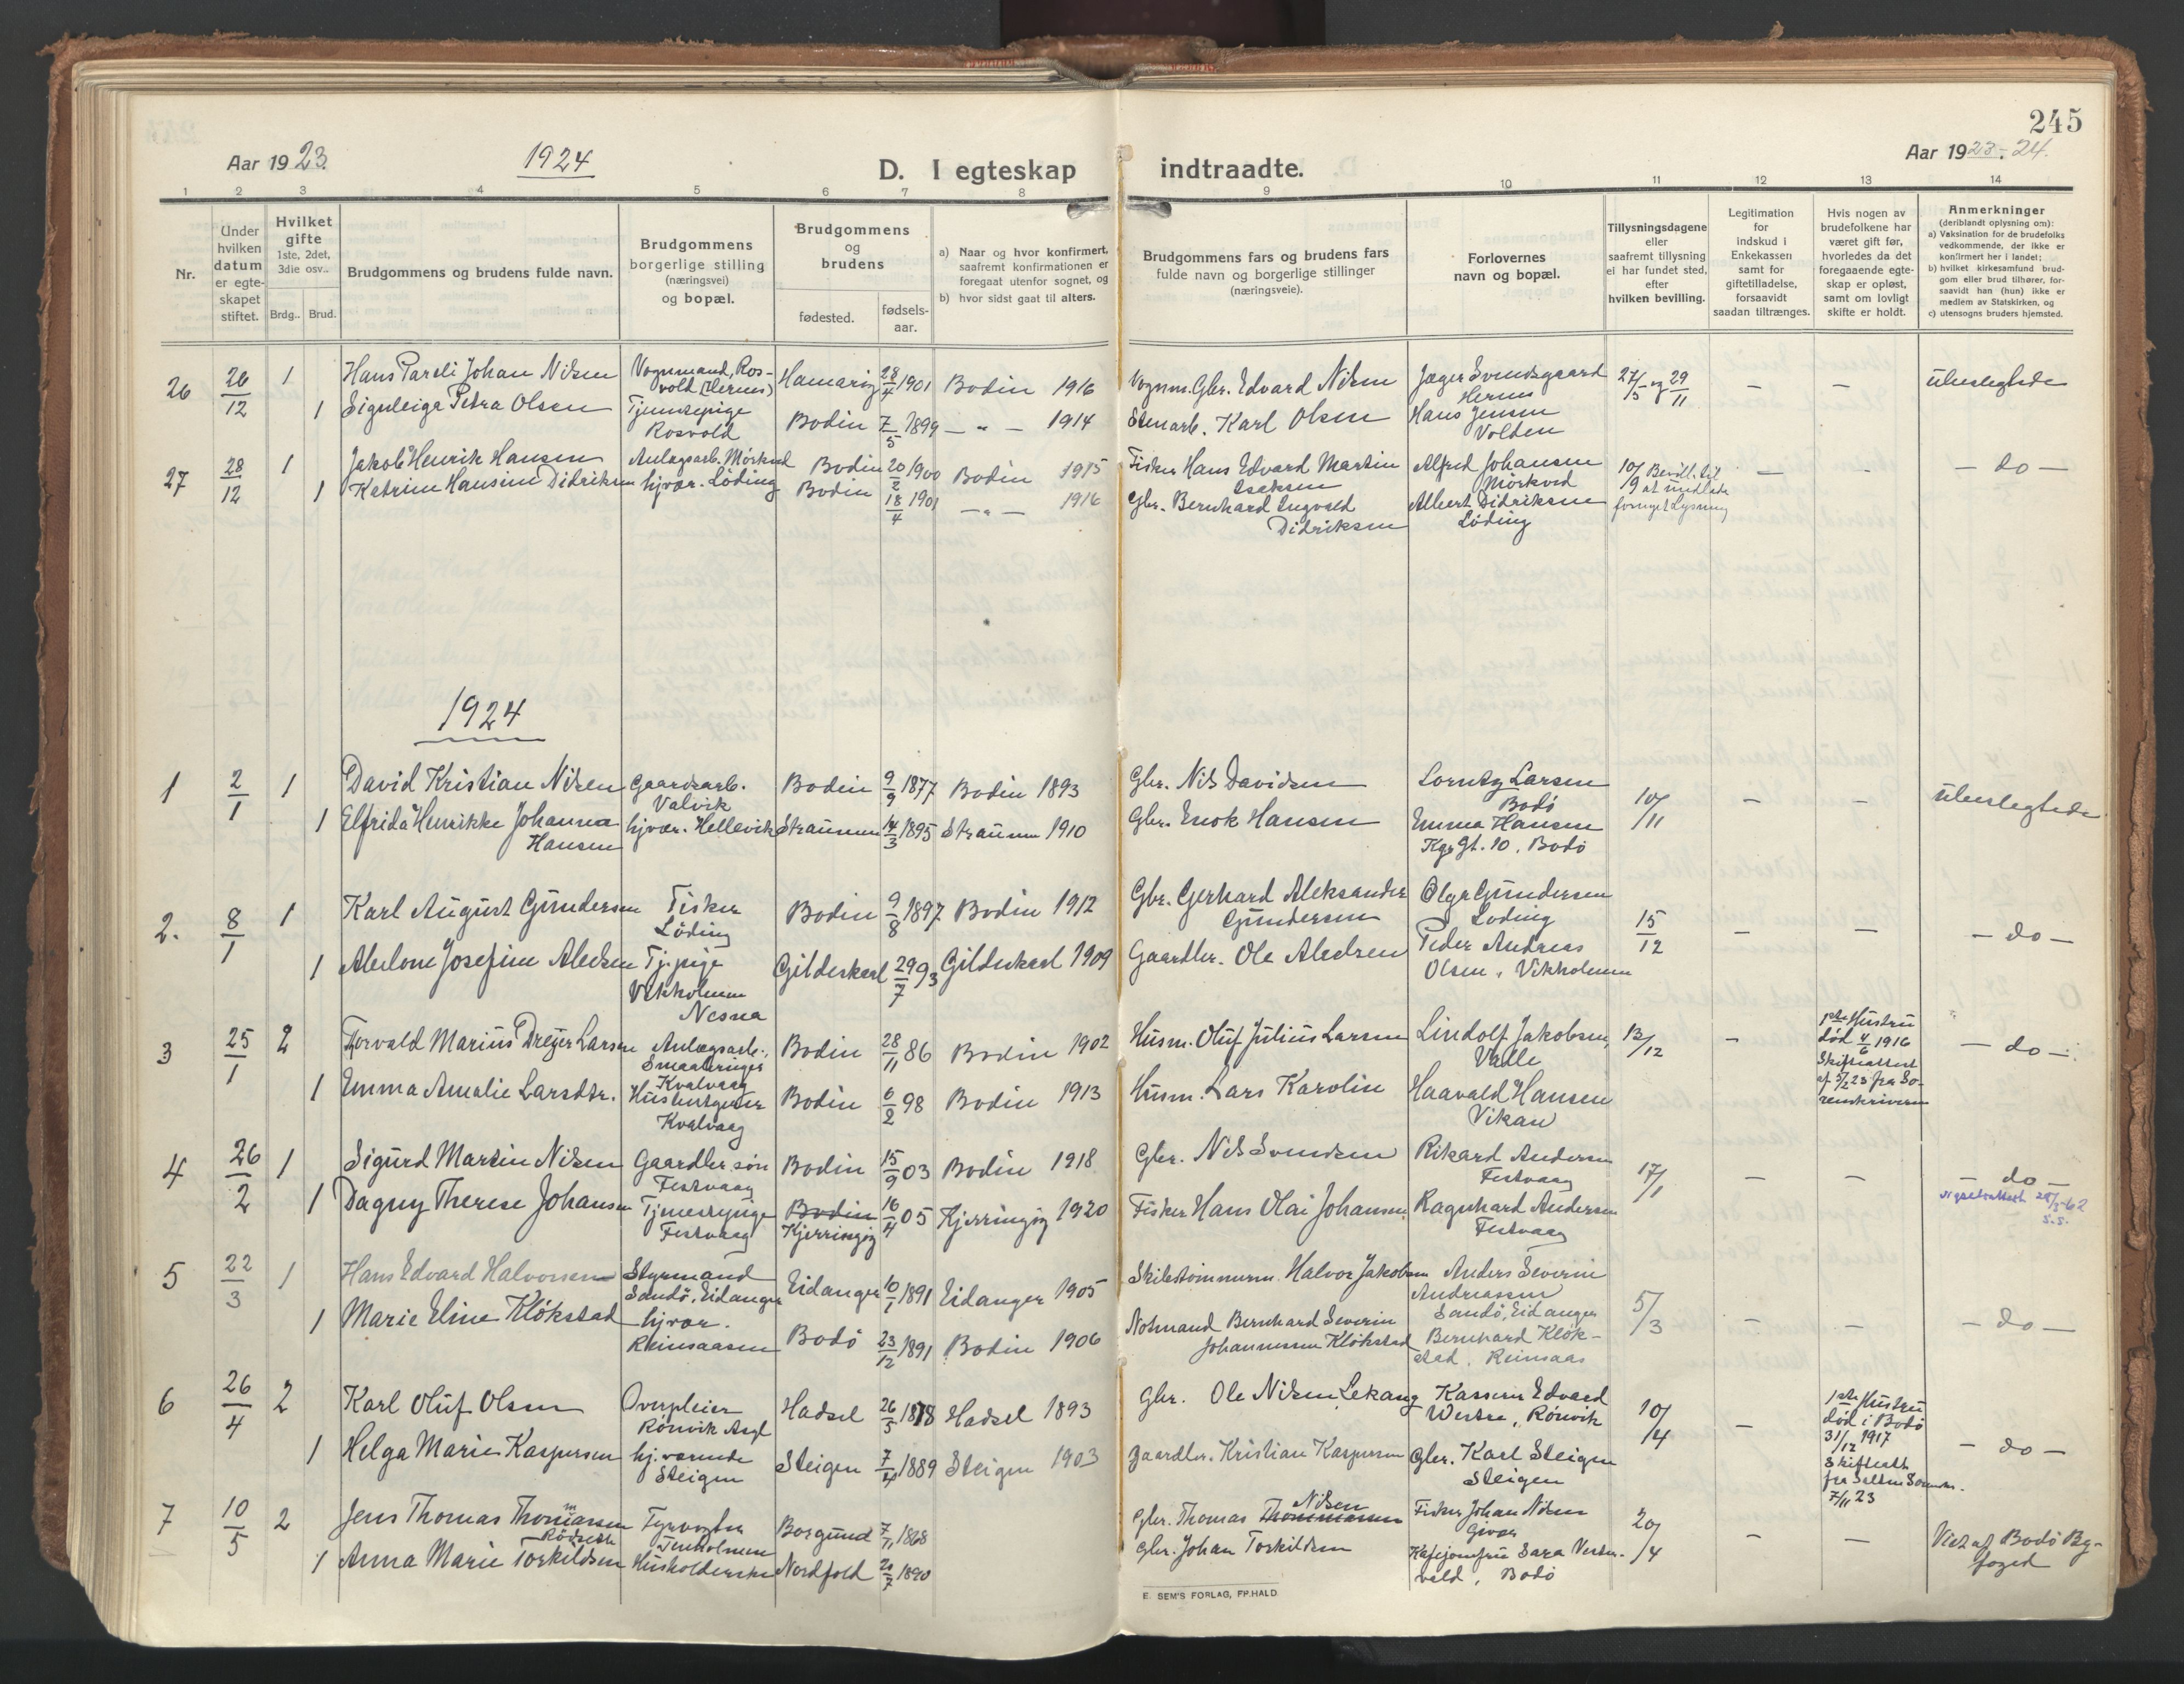 245
Aar 1923. 1924 D. I egteskap indtraadte. Aar 1923-24.
1 2 3 4 5 6 7 8 9 10 11 12 13 14
Nr.
Under hvilken datum er egteskapet stiftet.
Hvilket gifte 1ste, 2det, 3die osv..
Brdg.. Brud.
Brudgommens og brudens fulde navn.
Brudgommens borgerlige stilling (næringsvei) og bopæl.
Brudgommens og brudens
fødested. fødselsaar.
a) Naar og hvor konfirmert, saafremt konfirmationen er foregaat utenfor sognet, og
b) hvor sidst gaat til alters.
Brudgommens fars og brudens fars fulde navn og borgerlige stillinger (næringsveie).
Forlovernes navn og bopæl.
Tillysningsdagene eller saafremt tillysning ei har fundet sted, efter hvilken bevilling.
Legitimation for indskud i Enkekassen samt for giftetilladelse, forsaavidt saadan tiltrænges.
Hvis nogen av brudefolkene har været gift før, hvorledes da det foregaaende egteskap er opløst, samt om lovligt skifte er holdt.
Anmerkninger (deriblandt oplysning om): a) Vaksination for de brudefolks vedkommende, der ikke er konfirmert her i landet; b) hvilket kirkesamfund brudgom eller brud tilhører, forsaavidt han (hun) ikke er medlem av Statskirken, og c) utensogns bruders hjemsted.
26 26/12 1 Hans Pareli Johan Nilsen Vognmand, Rosvold (Hernes) Hamarøy 28/4 1901 Bodin 1916 Vognm. Gbr. Edvard Nilsen Jæger Svendsgaard Hernes 27/5 og 29/11 — — ubeslegtede
1 Signleiga Petra Olsen Tjenestepige Rosvold Bodin 7/5 1899 — " — 1914 Stenarb. Karl Olsen Hans Jensen Volden
27 28/12 1 Jakob Henrik Hansen Anlægsarb. Mørkved Bodin 20/2 1900 Bodin 1915 Fisker Hans Edvard Martin Iseksen Alfred Johansen Mörkved 10/9 Bevill. til at undlate fornyet Lysning — - — do —
1 Katrine Hansine Didriksen hjvær. Löding Bodin 18/4 1901 — " — 1916 Gbr. Bernhard Ingvald Didriksen Albert Didriksen Löding
1924
1 2/1 1 David Kristian Nilsen Gaardsarb. Valvik Bodin 9/9 1877 Bodin 1893 Gbr. Nils Davidsen Lorntz Larsen Bodö 10/11 — — ubeslegtede
1 Elfrida Henrikke Johanna Hansen hjvær. Hellevik Straumen 14/3 1895 Straumen 1910 Gbr. Enok Hansen Emma Hansen Kgs Gt. 10, Bodö
2. 8/1 1 Karl August Gundersen Fisker Löding Bodin 9/8 1897 Bodin 1912 Gbr. Gerhard Aleksander Gundersen Olga Gundersen Löding 15/12 — — — do —
1 Abelone Josefine Aledsen Tj.pige Vikholmen Nesna Gildeskaal 29/7 93 Gildeskaal 1909 Gaardbr. Ole Aledsen Peder Andreas Olsen, Vikholmen
3 25/1 2 Torvald Marius Dreyer Larsen Anlægsarb., Smaabruger Kvalvaag Bodin 28/11 86 Bodin 1902 Husm. Oluf Julius Larsen Lindolf Jakobsen, Valle 13/12 - 1ste Hustru död 4/6 1916 Skifteattest af 5/2 23 fra Sorenskriveren — do —
1 Emma Amalie Larsdtr. Husbestyrer Kvalvaag Bodin 6/2 98 Bodin 1913 Husm. Lars Karolin Haavald Hansen Vikan
4 26/2 1 Sigurd Martin Nilsen Gaardbr. sön Festvaag Bodin 15/9 03 Bodin 1918 Gbr. Nils Svendsen Rikard Andersen Festvaag 17/1 — — — do —
1 Dagny Therese Johansen Tjenestepige Festvaag Bodin Kjerringöy 16/4 05 Kjerringöy 1920 Fisker Hans Olai Johansen Ragnhard Andersen Festvaag
5 22/3 1 Hans Edvard Halvorsen Styrmand Sandö, Eidanger Eidanger 10/1 1891 Eidanger 1905 Skibstömmerm. Halvor Jakobsen Anders Severin Andreassen Sandö, Eidanger 5/3 — — — do —
1 Marie Eline Klökstad hjvær. Reinsaasen Bodö 23/12 1891 Bodin 1906 Notmand Bernhard Severin Johannessen Klökstad Bernhard Klökstad. Reinsaas
6 26/4 2 Karl Oluf Olsen Overpleier Rönvik Asyl Hadsel 26/5 1878 Hadsel 1893 Gbr. Ole Nilsen Lekang Kasserer Edvard Westre, Rönvik 10/4 — 1ste Hustru död i Bodö 31/12 1917 Skifteatt. fra Salten Sorenskr. 7/11 23 — do —
1 Helga Marie Kaspersen hj.værende Steigen Steigen 7/4 1889 Steigen 1903 Gaardbr. Kristian Kaspersen Gbr. Karl Steigen Steigen
7 10/5 2 Jens Thomas Thomassen Rödseth Fyrvogter Tenholmen Borgund 7/11 1868 Gbr. Thomas Thommassen Nilsen Fisker Johan Nilsen Givær 20/4 — — Viet af Bodö Byfoged
1 Anna Marie Torkildsen Husholderske Nordfold 21/7 1890 Gbr. Johan Torkildsen Kafejomfru Sara Vestervold, Bodö
E. SEM'S FORLAG, FR.HALD